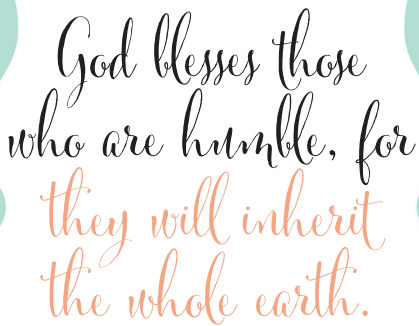 God blesses those
who are humble, for
they will inherit
the whole earth.